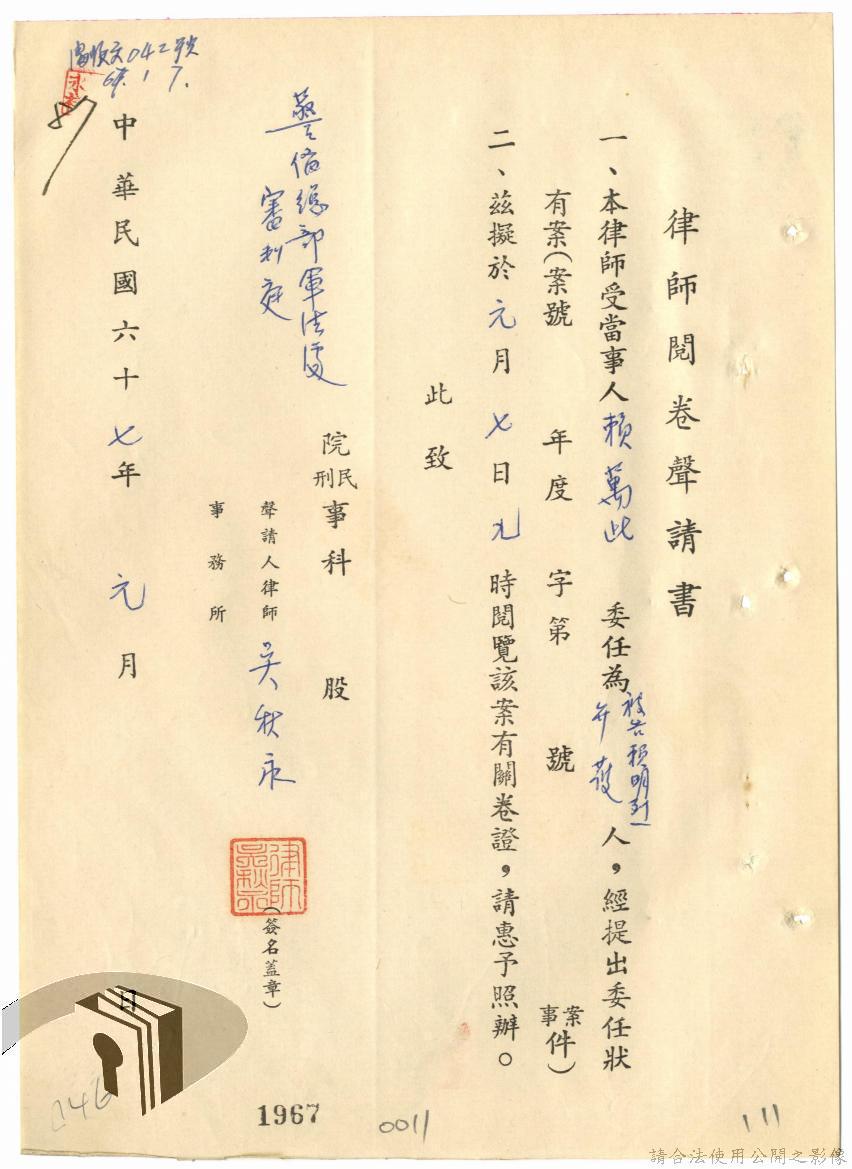 律師閱卷聲請書
一、本律師受當事人賴萬此 委任為被告賴明烈辯護人，經提出委任狀
有案（案號 年度 字第 號 案件事件）
二、茲擬於元月七日九時閱覽該案有關卷證，請惠予照辦。
此致
院民刑事科 股
警備總部軍法處
審判庭
聲請人律師 吳秋永
（簽名蓋章）
事務所
中華民國六十七年 元月 日
042號
67.1.7.
1967
0011
111
請合法使用公開之影像